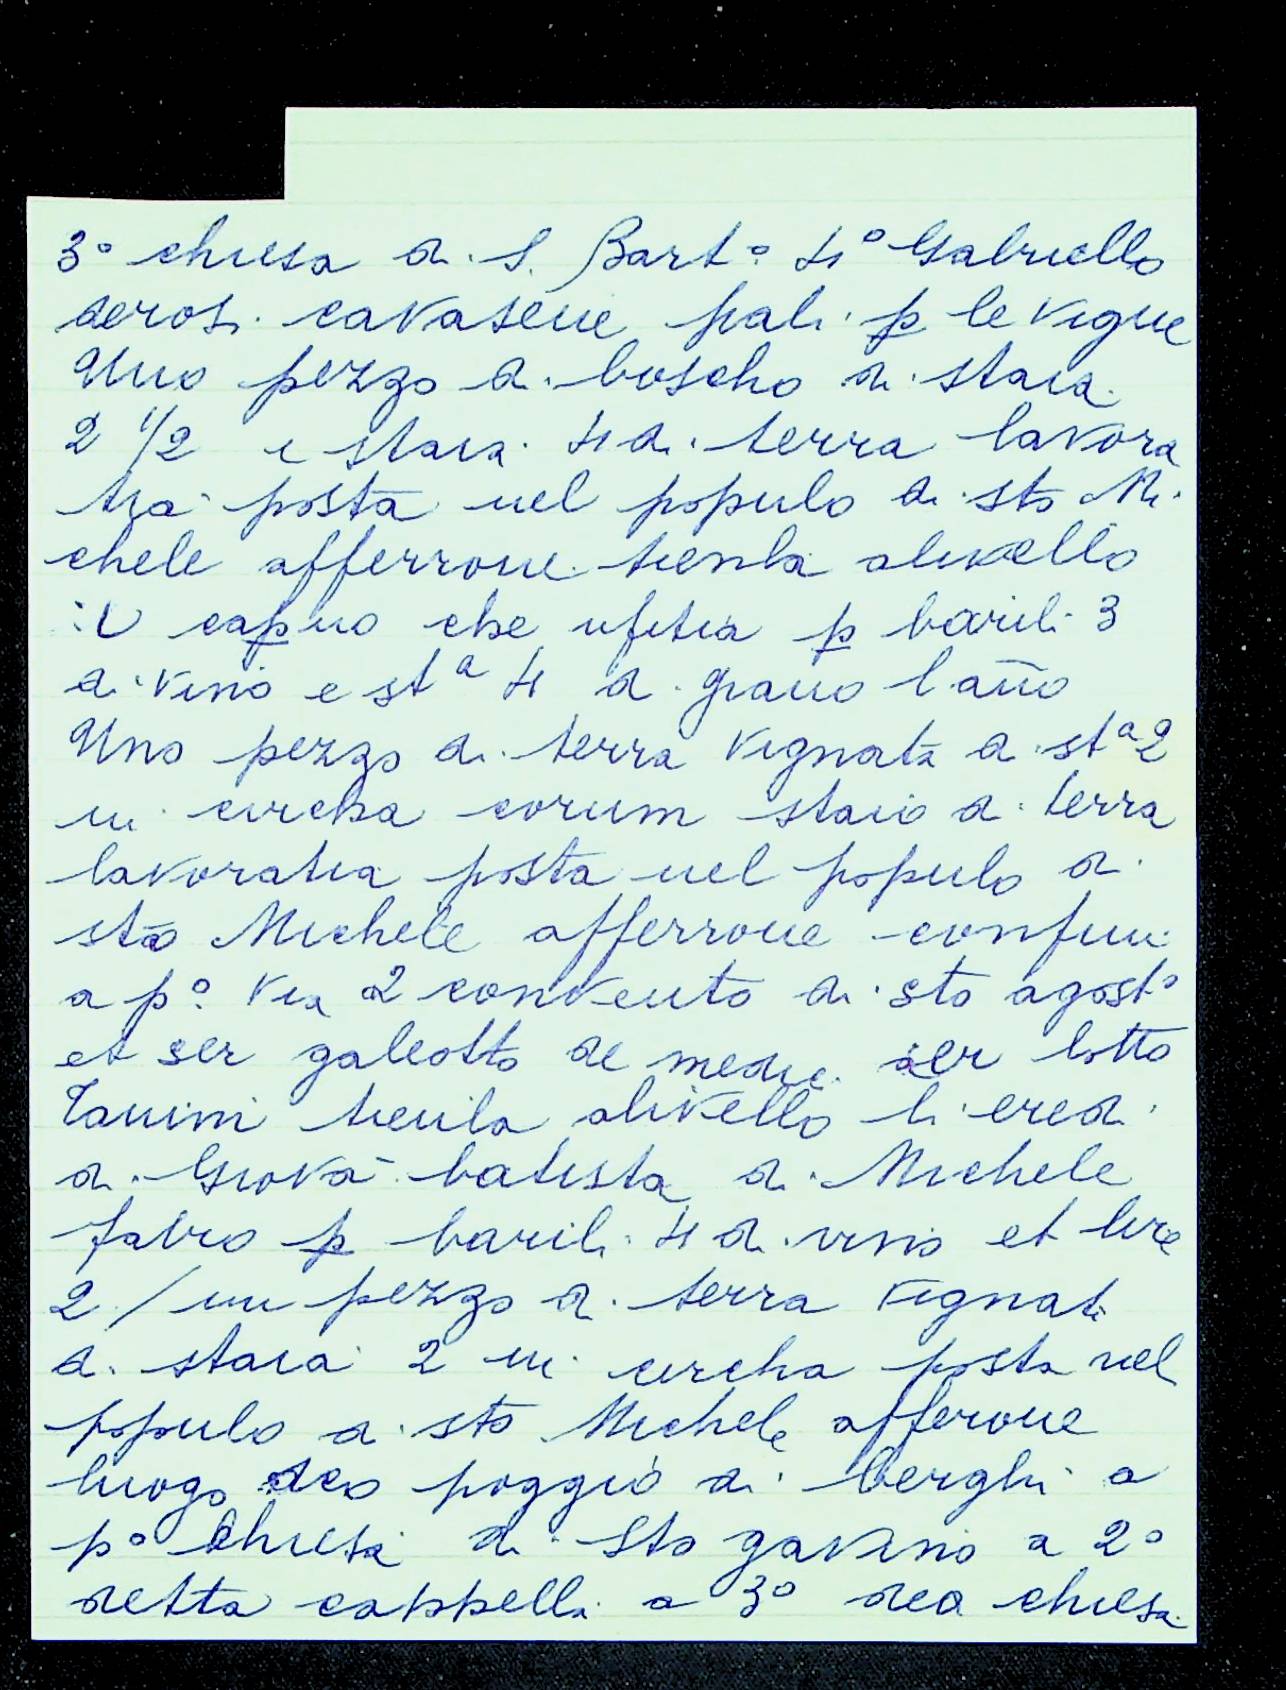 3° chiesa di S. Bart° 4° Gabriello
deros. cavasene pali p le vigne
Uno pezzo di boscho di staia
2 1/2 e staia 4 di terra lavora
tia posta nel populo di sto Mi
chele afferrone tienla alivello
il capno che ufitia p barili 3
di vino e st^a 4 di grano l año
Uno pezzo di terra vignata di st^a 2
in circha corum staio di terra
lavoratia posta nel populo di
sto Michele afferrone confini
a p° via 2 convento di sto agost°
et ser galeotto de medici ser lotto
Tanini tienila alivello li eredi
di Giovā batista di Michele
fabro p barili 4 di vino et lire
2 / un pezzo di terra vignati
di staia 2 in circha posta nel
populo di sto Michele afferone
luogo deo poggio di berghi a
p° chiesa di Sto gavino a 2°
detta cappella a 3° dea chiesa